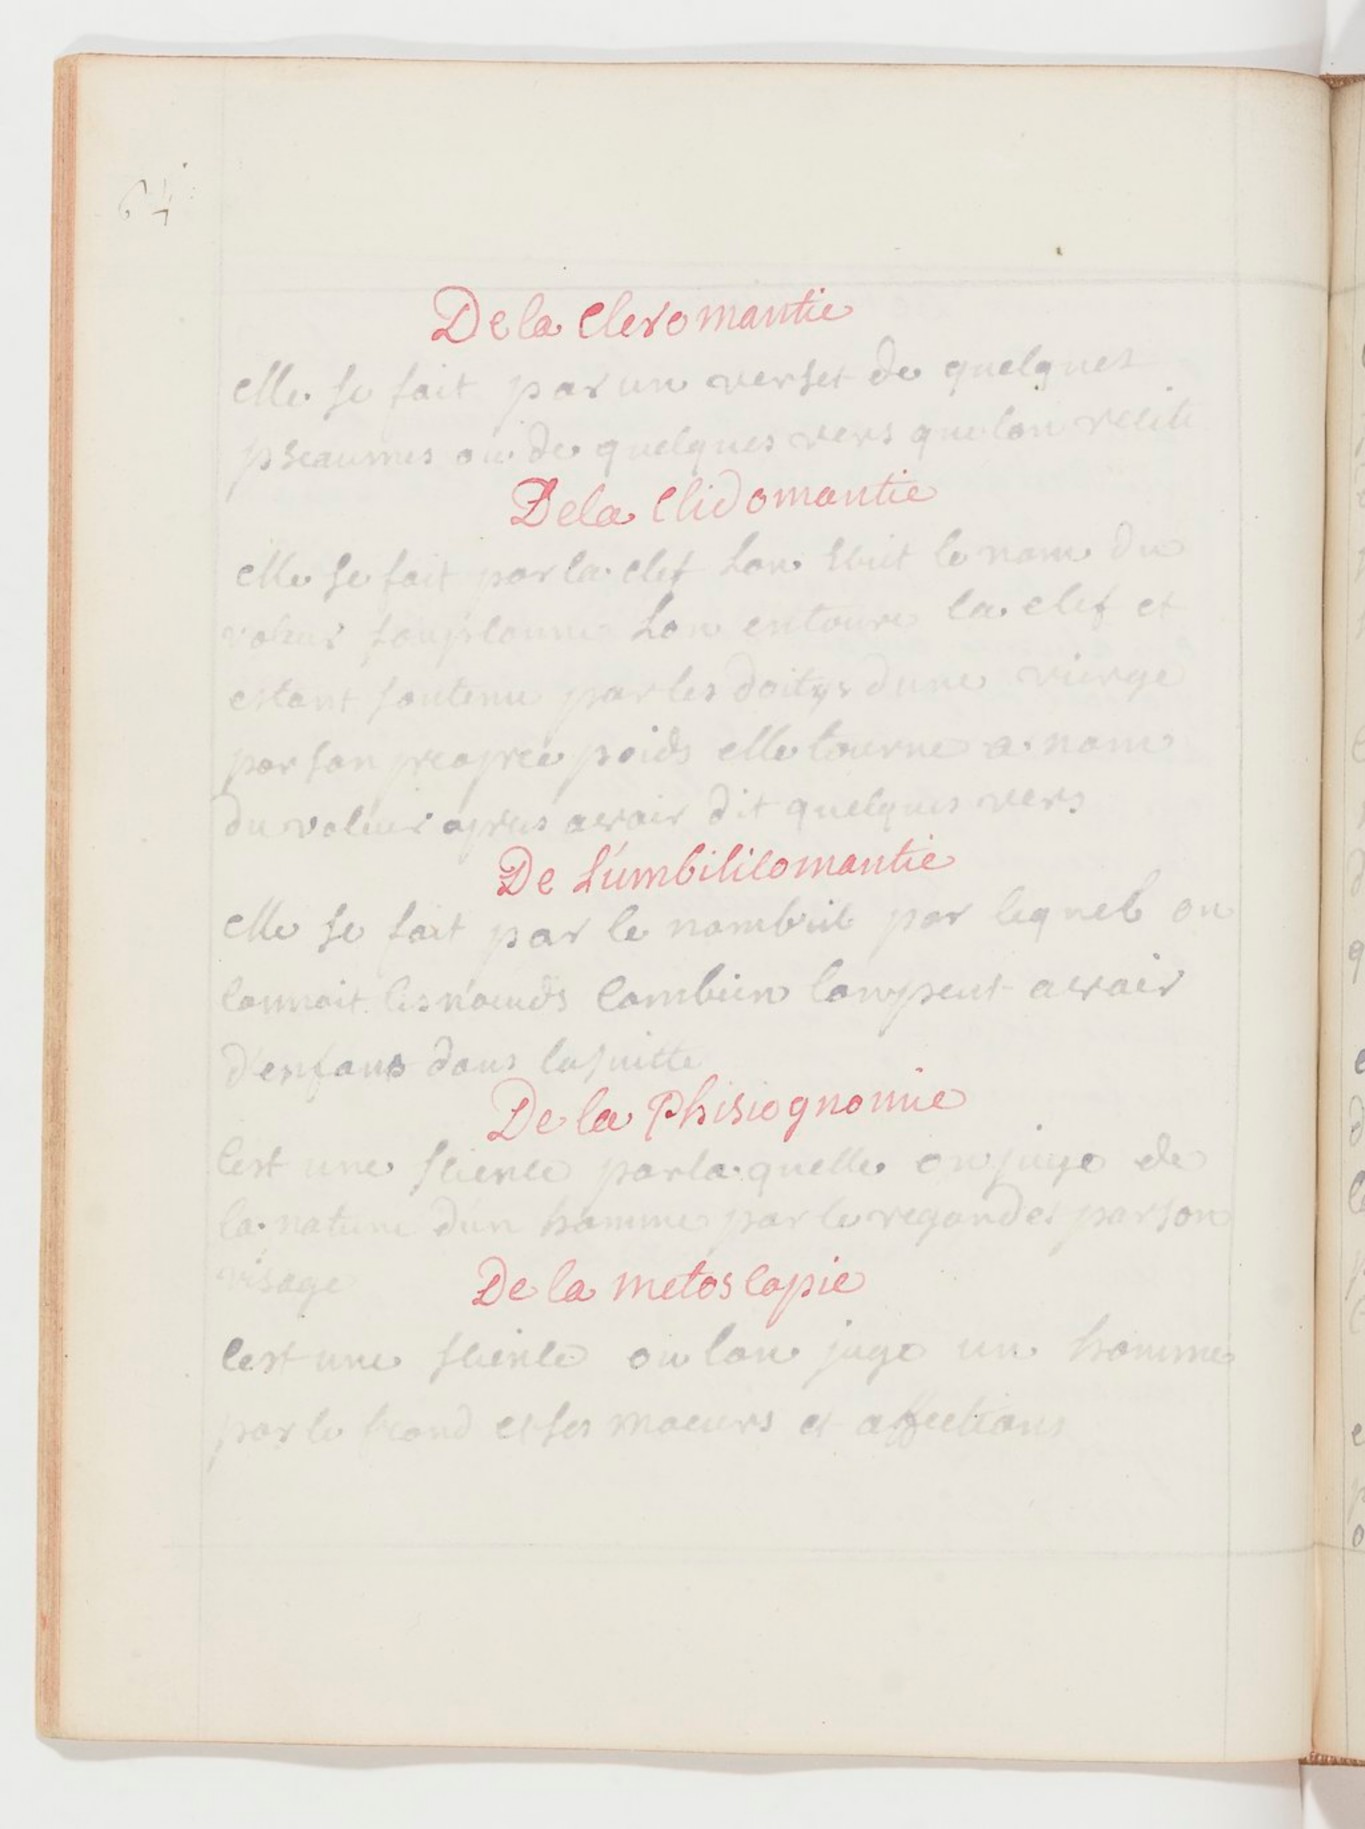 64
De la Cleromantie
elle se fait par un verset de quelques
pseaumes ou de quelques vers que lon recite
De la Clidomantie
elle se fait par la clef Lon Ecrit le nom du
voleur soupconne Lon entoure la clef et
estant soutenu par les doitgs dune vierge
par son propre poids elle tourne a nom
du voleur apres avoir dit quelques vers
De L'umbilicomantie
elle se fait par le nombril par lequel on
connoit les noeuds Combien lon peut avoir
d'enfans dans la suitte
De la Phisiognomie
Cest une science par la quelle on juge de
la nature dun homme par le regard et par son
visage
De la metoscopie
Cest une science ou lon juge un homme
par le frond et ses moeurs et affections